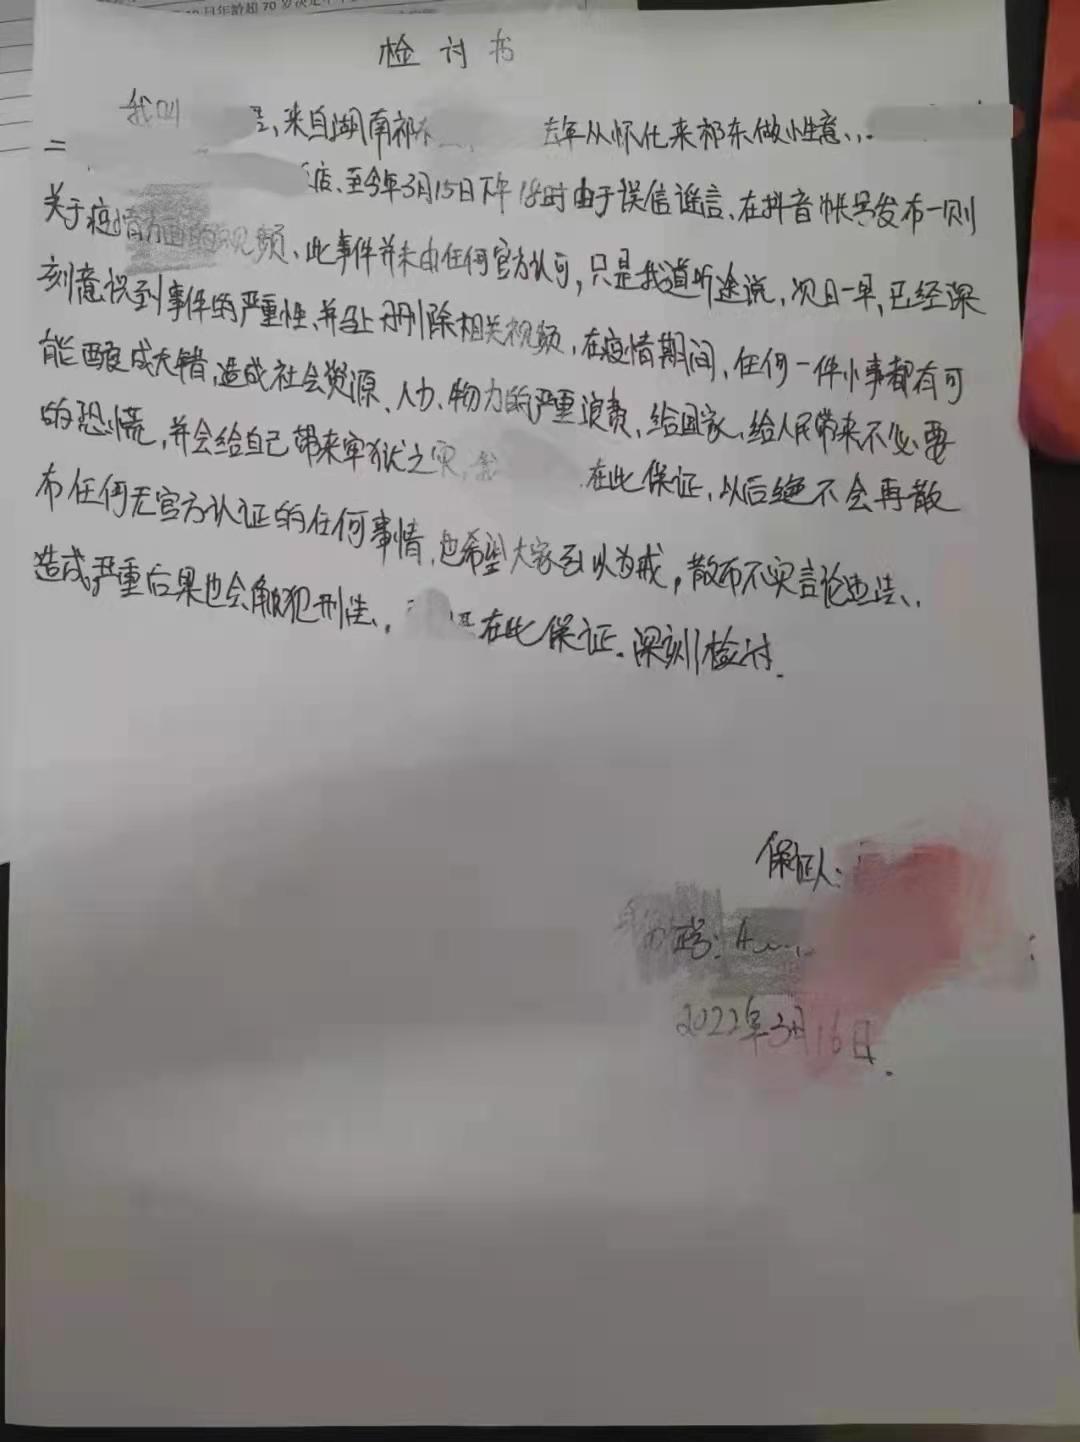 日年龄超70岁
检讨书
我叫 来自湖南祁东 去年从怀化来祁东做生意、
二
店、至今年3月15日下午18时由于误信谣言、在抖音帐号发布一则
关于疫情方面的视频、此事件并未由任何官方认可，只是我道听途说，次日一早，已经深
刻意识到事件的严重性、并马上删除相关视频，在疫情期间，任何一件小事都有可
能酿成大错，造成社会资源、人力、物力的严重浪费、给国家、给人民带来不必要
的恐慌，并会给自己带来牢狱之灾， 在此保证，以后绝不会再散
布任何无官方认证的任何事情，也希望大家引以为戒，散布不实言论违法、
造成严重后果也会触犯刑法、 在此保证。深刻检讨.
保证人:
2022年3月16日.